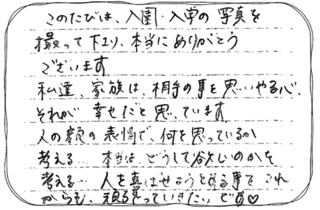 このたびは、入園・入学の写真を
撮って下さり、本当にありがとう
ございます
私達、家族は、相手の事を思いやる心、
それが幸せだと思っています。
人の顔の表情で、何を思っているか
考える… 本当は、どうして欲しいのかを
考える… 人を喜ばせようとする事を これ
からも、頑張っていきたいです♡